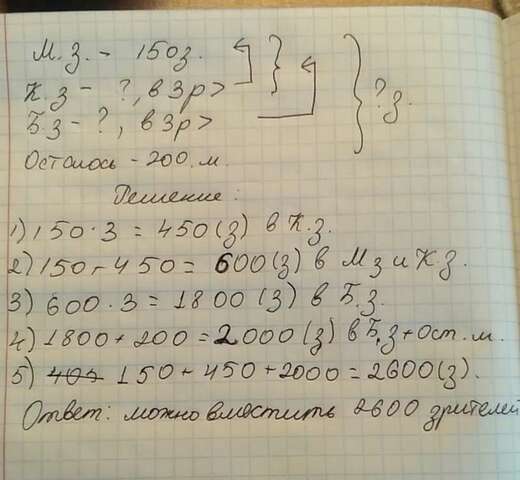 М.З. - 150з.
К.З - ?, в 3р >
Б.З - ?, в 3р >
?з.
Осталось - 200 м.
Решение:
1) 150 · 3 = 450 (з) в К.З.
2) 150 + 450 = 600 (з) в Мз и К.З.
3) 600 · 3 = 1800 (з) в Б.З.
4) 1800 + 200 = 2000 (з) в Б.З + Ост. м.
5) 150 + 450 + 2000 = 2600 (з).
Ответ: можно вместить 2600 зрителей